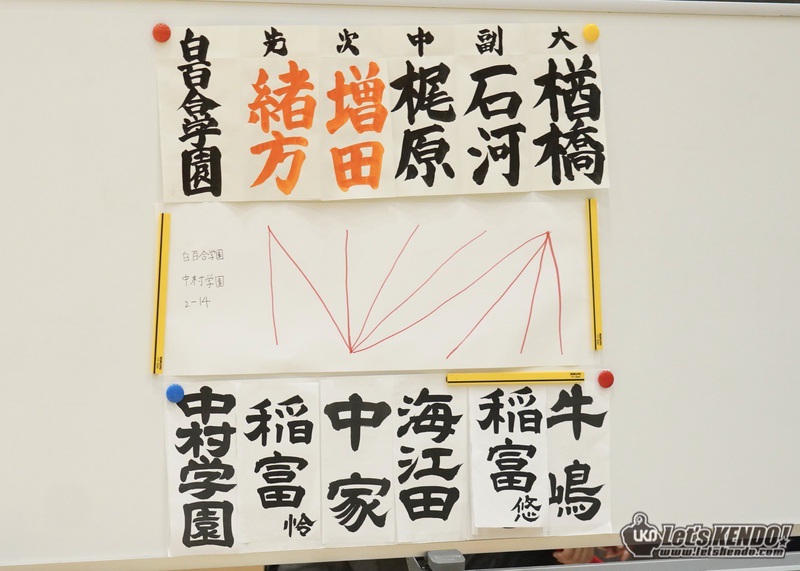 大
楢橋
副
石河
中
梶原
次
増田
先
緒方
白百合学園
白百合学園
中村学園
2-14
牛嶋
稲富 悠
海江田
中家
稲富 怜
中村学園
Let'sKENDO!
www.letskendo.com